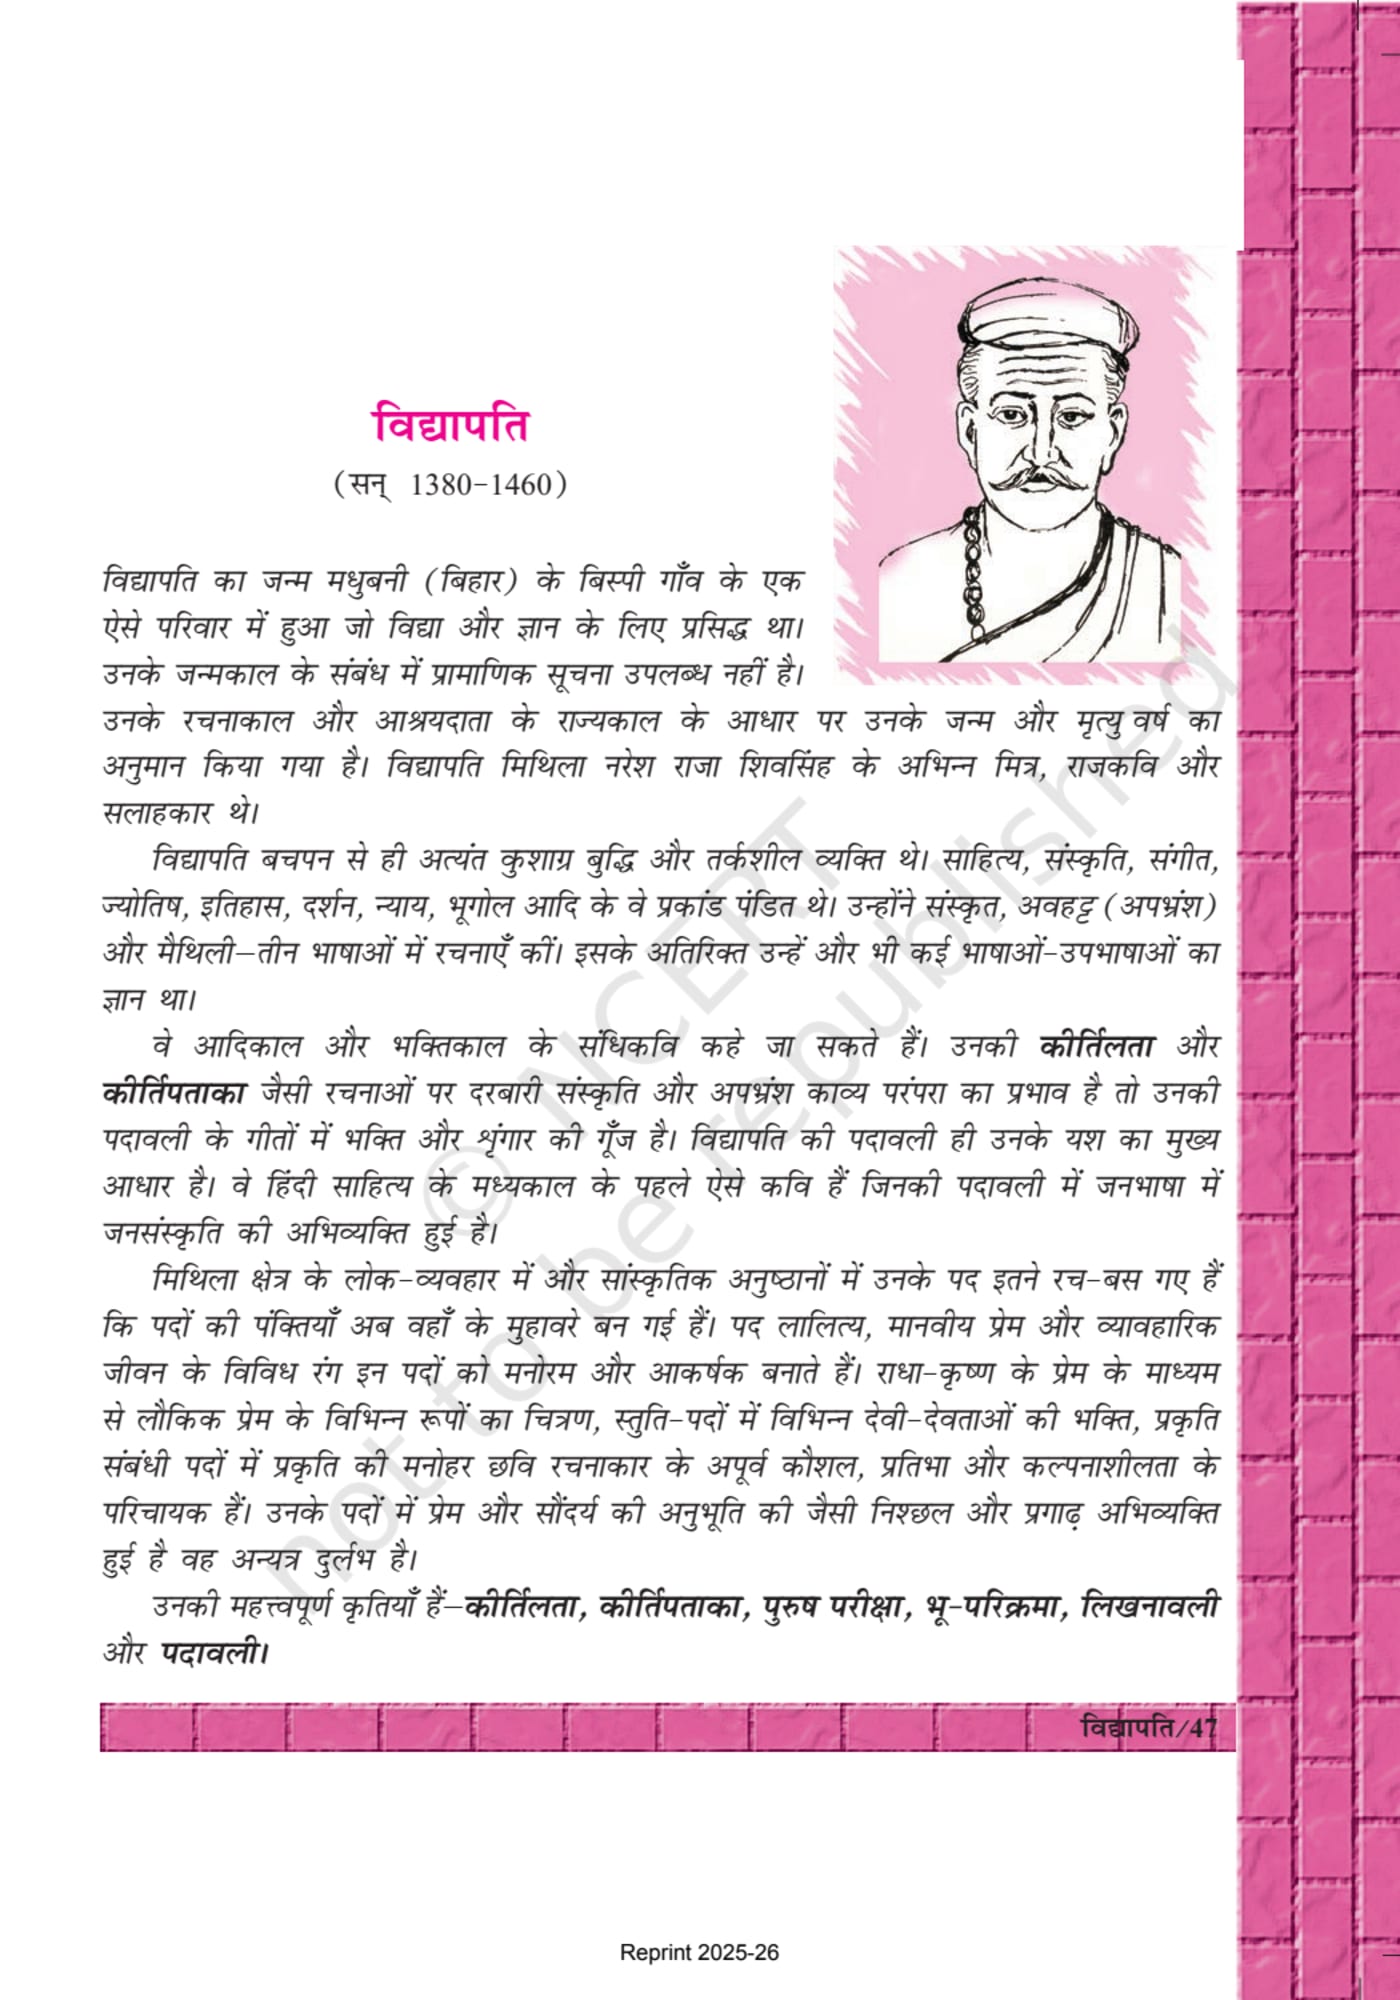 विद्यापति
(सन् 1380-1460)
विद्यापति का जन्म मधुबनी (बिहार) के बिस्पी गाँव के एक
ऐसे परिवार में हुआ जो विद्या और ज्ञान के लिए प्रसिद्ध था।
उनके जन्मकाल के संबंध में प्रामाणिक सूचना उपलब्ध नहीं है।
उनके रचनाकाल और आश्रयदाता के राज्यकाल के आधार पर उनके जन्म और मृत्यु वर्ष का
अनुमान किया गया है। विद्यापति मिथिला नरेश राजा शिवसिंह के अभिन्न मित्र, राजकवि और
सलाहकार थे।
विद्यापति बचपन से ही अत्यंत कुशाग्र बुद्धि और तर्कशील व्यक्ति थे। साहित्य, संस्कृति, संगीत,
ज्योतिष, इतिहास, दर्शन, न्याय, भूगोल आदि के वे प्रकांड पंडित थे। उन्होंने संस्कृत, अवहट्ट (अपभ्रंश)
और मैथिली—तीन भाषाओं में रचनाएँ कीं। इसके अतिरिक्त उन्हें और भी कई भाषाओं-उपभाषाओं का
ज्ञान था।
वे आदिकाल और भक्तिकाल के संधिकवि कहे जा सकते हैं। उनकी कीर्तिलता और
कीर्तिपताका जैसी रचनाओं पर दरबारी संस्कृति और अपभ्रंश काव्य परंपरा का प्रभाव है तो उनकी
पदावली के गीतों में भक्ति और शृंगार की गूँज है। विद्यापति की पदावली ही उनके यश का मुख्य
आधार है। वे हिंदी साहित्य के मध्यकाल के पहले ऐसे कवि हैं जिनकी पदावली में जनभाषा में
जनसंस्कृति की अभिव्यक्ति हुई है।
मिथिला क्षेत्र के लोक-व्यवहार में और सांस्कृतिक अनुष्ठानों में उनके पद इतने रच-बस गए हैं
कि पदों की पंक्तियाँ अब वहाँ के मुहावरे बन गई हैं। पद लालित्य, मानवीय प्रेम और व्यावहारिक
जीवन के विविध रंग इन पदों को मनोरम और आकर्षक बनाते हैं। राधा-कृष्ण के प्रेम के माध्यम
से लौकिक प्रेम के विभिन्न रूपों का चित्रण, स्तुति-पदों में विभिन्न देवी-देवताओं की भक्ति, प्रकृति
संबंधी पदों में प्रकृति की मनोहर छवि रचनाकार के अपूर्व कौशल, प्रतिभा और कल्पनाशीलता के
परिचायक हैं। उनके पदों में प्रेम और सौंदर्य की अनुभूति की जैसी निश्छल और प्रगाढ़ अभिव्यक्ति
हुई है वह अन्यत्र दुर्लभ है।
उनकी महत्त्वपूर्ण कृतियाँ हैं—कीर्तिलता, कीर्तिपताका, पुरुष परीक्षा, भू-परिक्रमा, लिखनावली
और पदावली।
विद्यापति/47
© NCERT
not to be republished
Reprint 2025-26